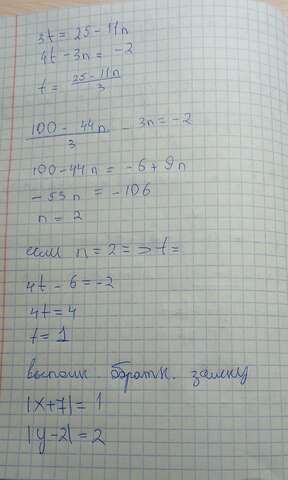 3t = 25 - 11n
4t - 3n = -2
t = \frac{25 - 11n}{3}
\frac{100 - 44n}{3} - 3n = -2
100 - 44n = -6 + 9n
-53n = -106
n = 2
если n = 2 => t =
4t - 6 = -2
4t = 4
t = 1
выполн. обратн. замену
|x+7| = 1
|y-2| = 2